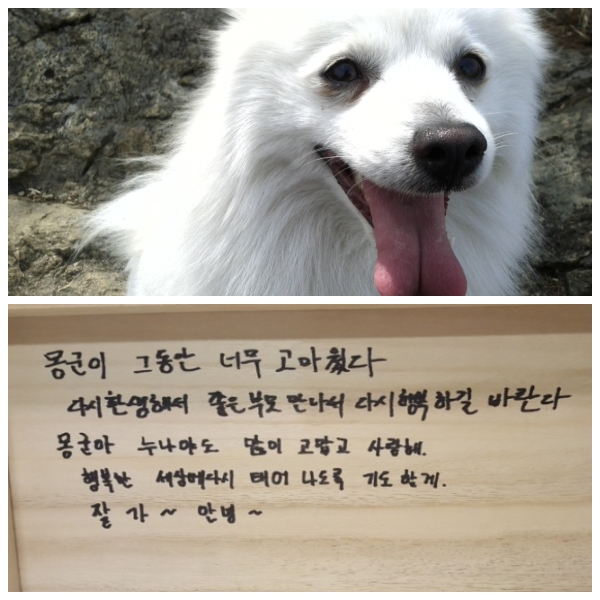 몽군이 그동안 너무 고마웠다
다시환생해서 좋은부모 만나서 다시행복하길 바란다
몽군아 누나야도 많이 고맙고 사랑해.
행복한 세상에다시 태어 나도록 기도 할게.
잘 가 ~ 안녕 ~